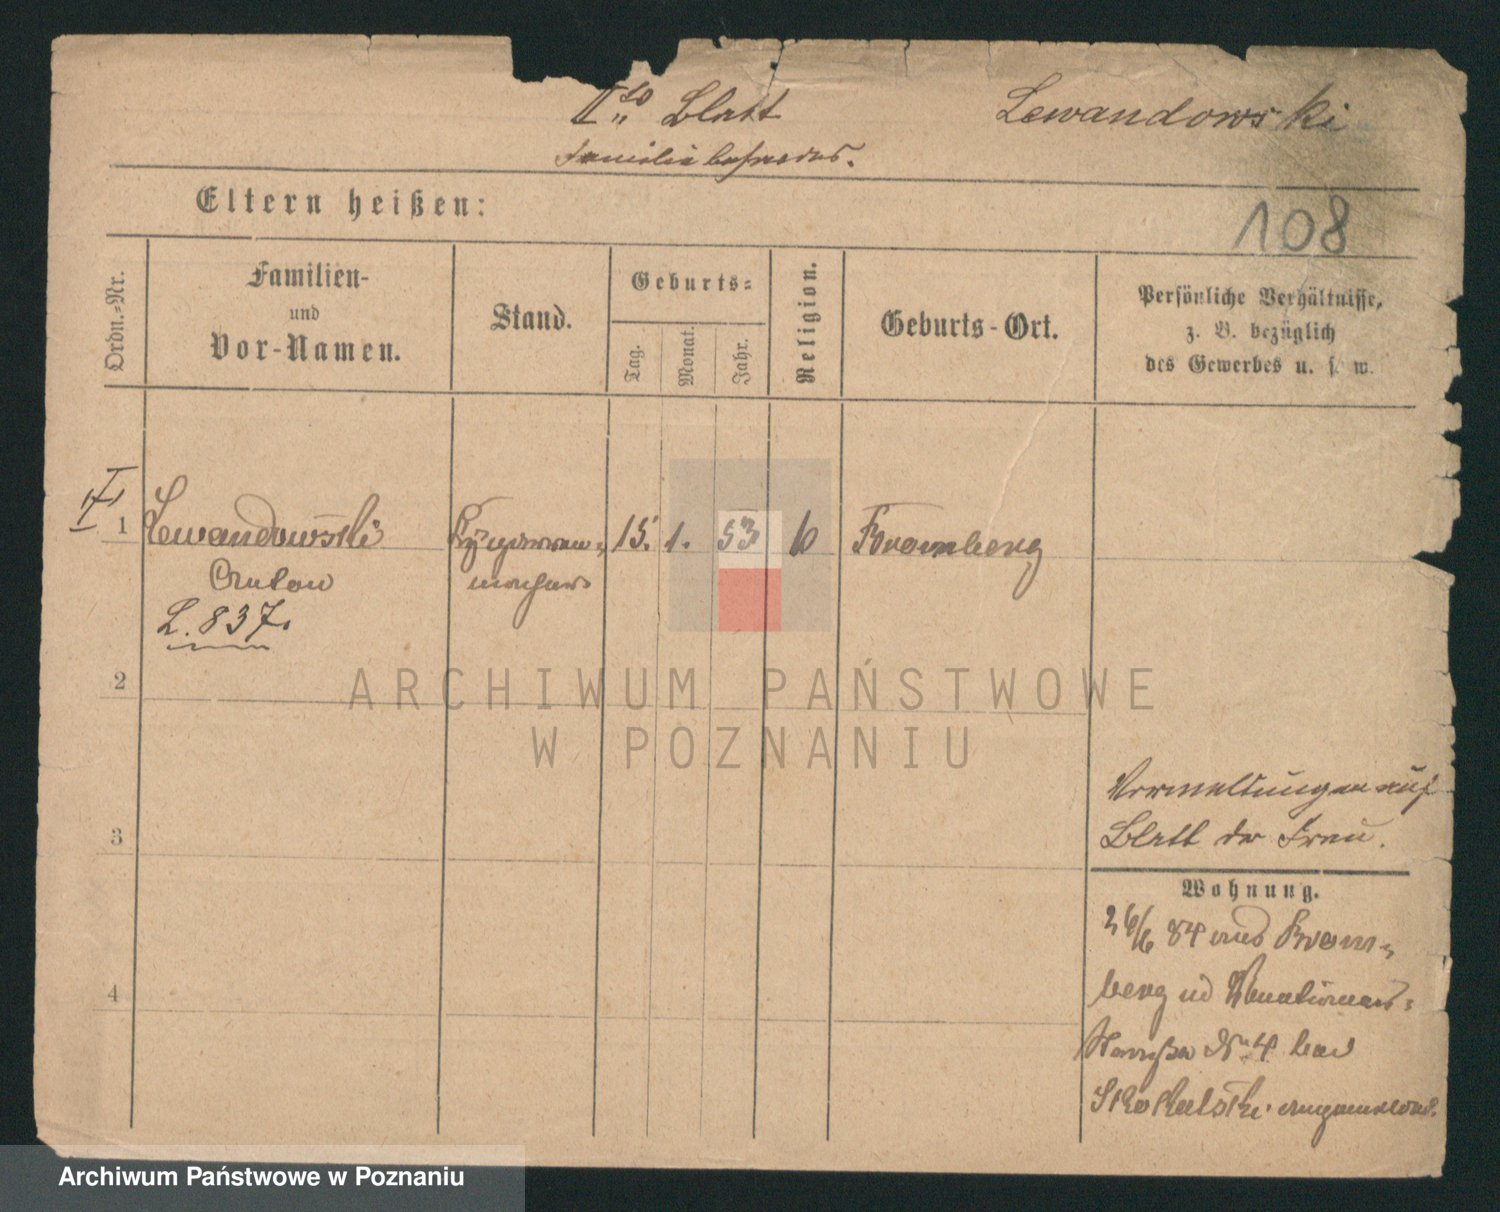 II.te Blatt
Lewandowski
Familie besonders.
Eltern heißen:
108
Ordn.=Nr.
Familien-
und
Vor-Namen.
Stand.
Geburts=
Tag.
Monat.
Jahr.
Religion.
Geburts-Ort.
Persönliche Verhältnisse,
z. B. bezüglich
des Gewerbes u. s. w.
1
Lewandowski
15. 1. 53
Bromberg
L. 837.
2
ARCHIWUM PAŃSTWOWE
W POZNANIU
3
auf
Blatt der Frau.
Wohnung.
26/6 84 aus Brom-
berg
4
No 4 bei
Archiwum Państwowe w Poznaniu